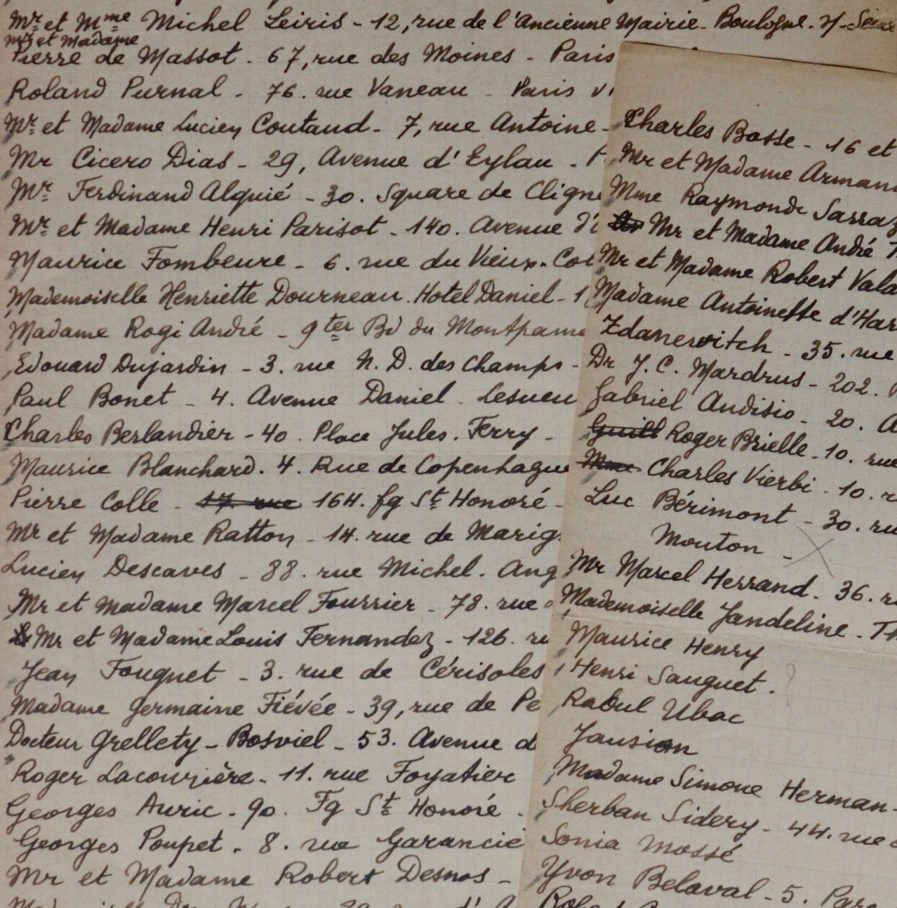 Mr et Mme Michel Leiris - 12, rue de l'Ancienne Mairie - Boulogne s/ Seine
Mr et Madame
Pierre de Massot - 67, rue des Moines - Paris
Roland Purnal - 76. rue Vaneau - Paris
Mr et Madame Lucien Coutaud - 7, rue Antoine -
Mr Cicero Dias - 29, Avenue d'Eylau -
Mr Ferdinand Alquié - 30. Square de Clign
Mr et Madame Henri Parisot - 140. Avenue d'
Maurice Fombeure - 6. rue du Vieux-Co
Mademoiselle Henriette Dourneau. Hotel Daniel -
Madame Rogi André - 9ter Bd du Montparna
Edouard Dujardin - 3. rue N. D. des Champs -
Paul Bonet - 4. Avenue Daniel - Lesueu
Charles Berlandier - 40. Place Jules. Ferry -
Maurice Blanchard. 4. Rue de Copenhague
Pierre Colle - 17. rue 164. fg St Honoré -
Mr et Madame Ratton - 14. rue de Marig
Lucien Descaves - 88. rue Michel. Ang
Mr et madame Marcel Fourrier - 78. rue
Mr et Madame Louis Fernandez - 126. ru
Jean Fouquet - 3. rue de Cérisoles
Madame Germaine Fiévée - 39, rue de Pe
Docteur Grellety - Bosviel - 53. Avenue d
Roger Lacourière - 11. rue Foyatier
Georges Auric - 90. Fg St Honoré -
Georges Poupet - 8. rue Garanciè
Mr et Madame Robert Desnos -
Charles Basse - 16 et
Mr et Madame Arman
Mme Raymonde Sarraz
Mr et Madame André
Mr et Madame Robert Vala
Madame Antoinette d'Har
Zdanevitch - 35. rue
Dr J. C. Mardrus - 202.
Gabriel Audisio - 20. A
Guill Roger Brielle - 10. rue
Mme Charles Vierbi - 10. r
Luc Bérimont - 30. ru
Mouton -
Mr Marcel Herrand - 36. r
Mademoiselle Jandeline - T
Maurice Henry
Henri Sauguet. ?
Raoul Ubac
Jansion
Madame Simone Herman-
Sherban Sidery - 44. rue
Sonia Mossé
Yvon Belaval - 5. Parc
Robert